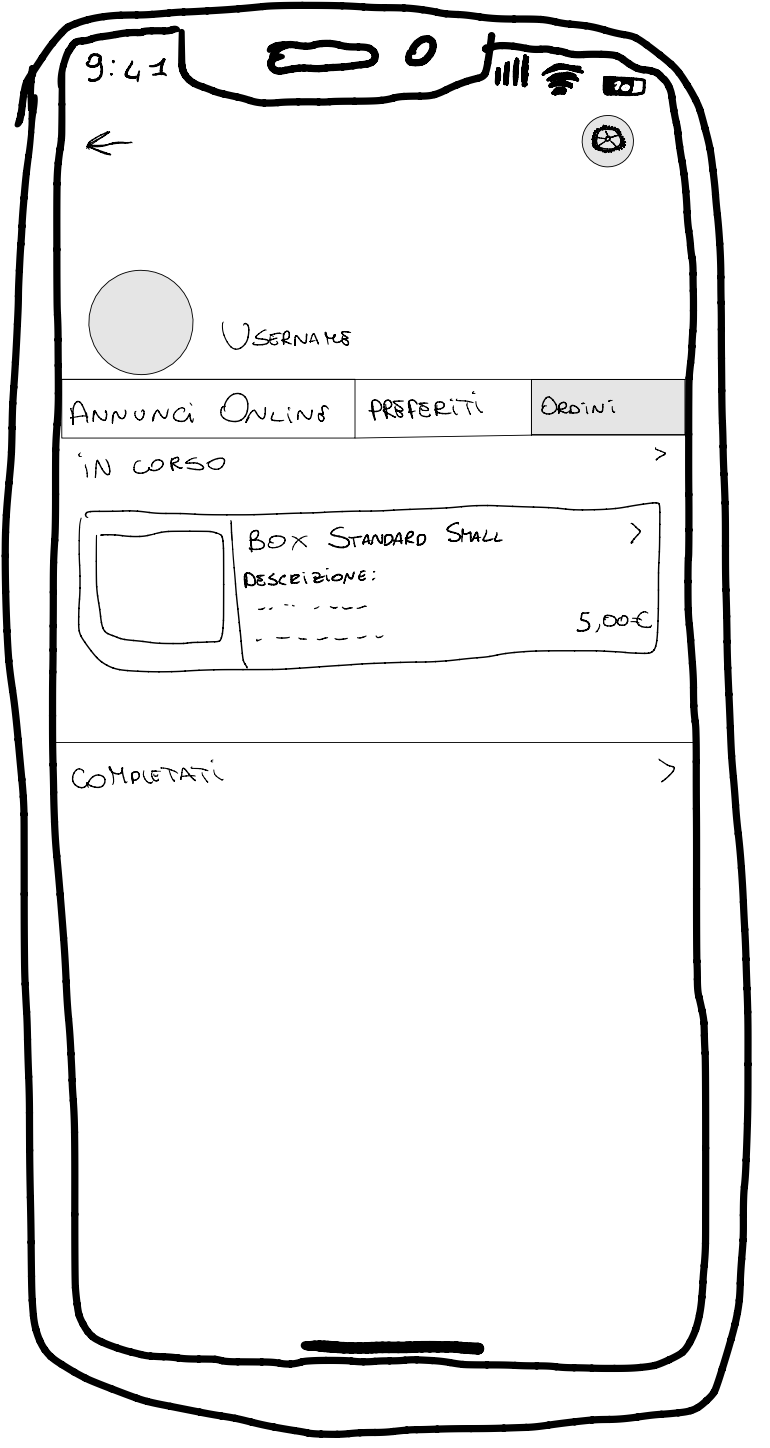 9:41
USERNAME
ANNUNCI ONLINE PREFERITI ORDINI
IN CORSO >
BOX STANDARD SMALL >
DESCRIZIONE:
5,00€
COMPLETATI >